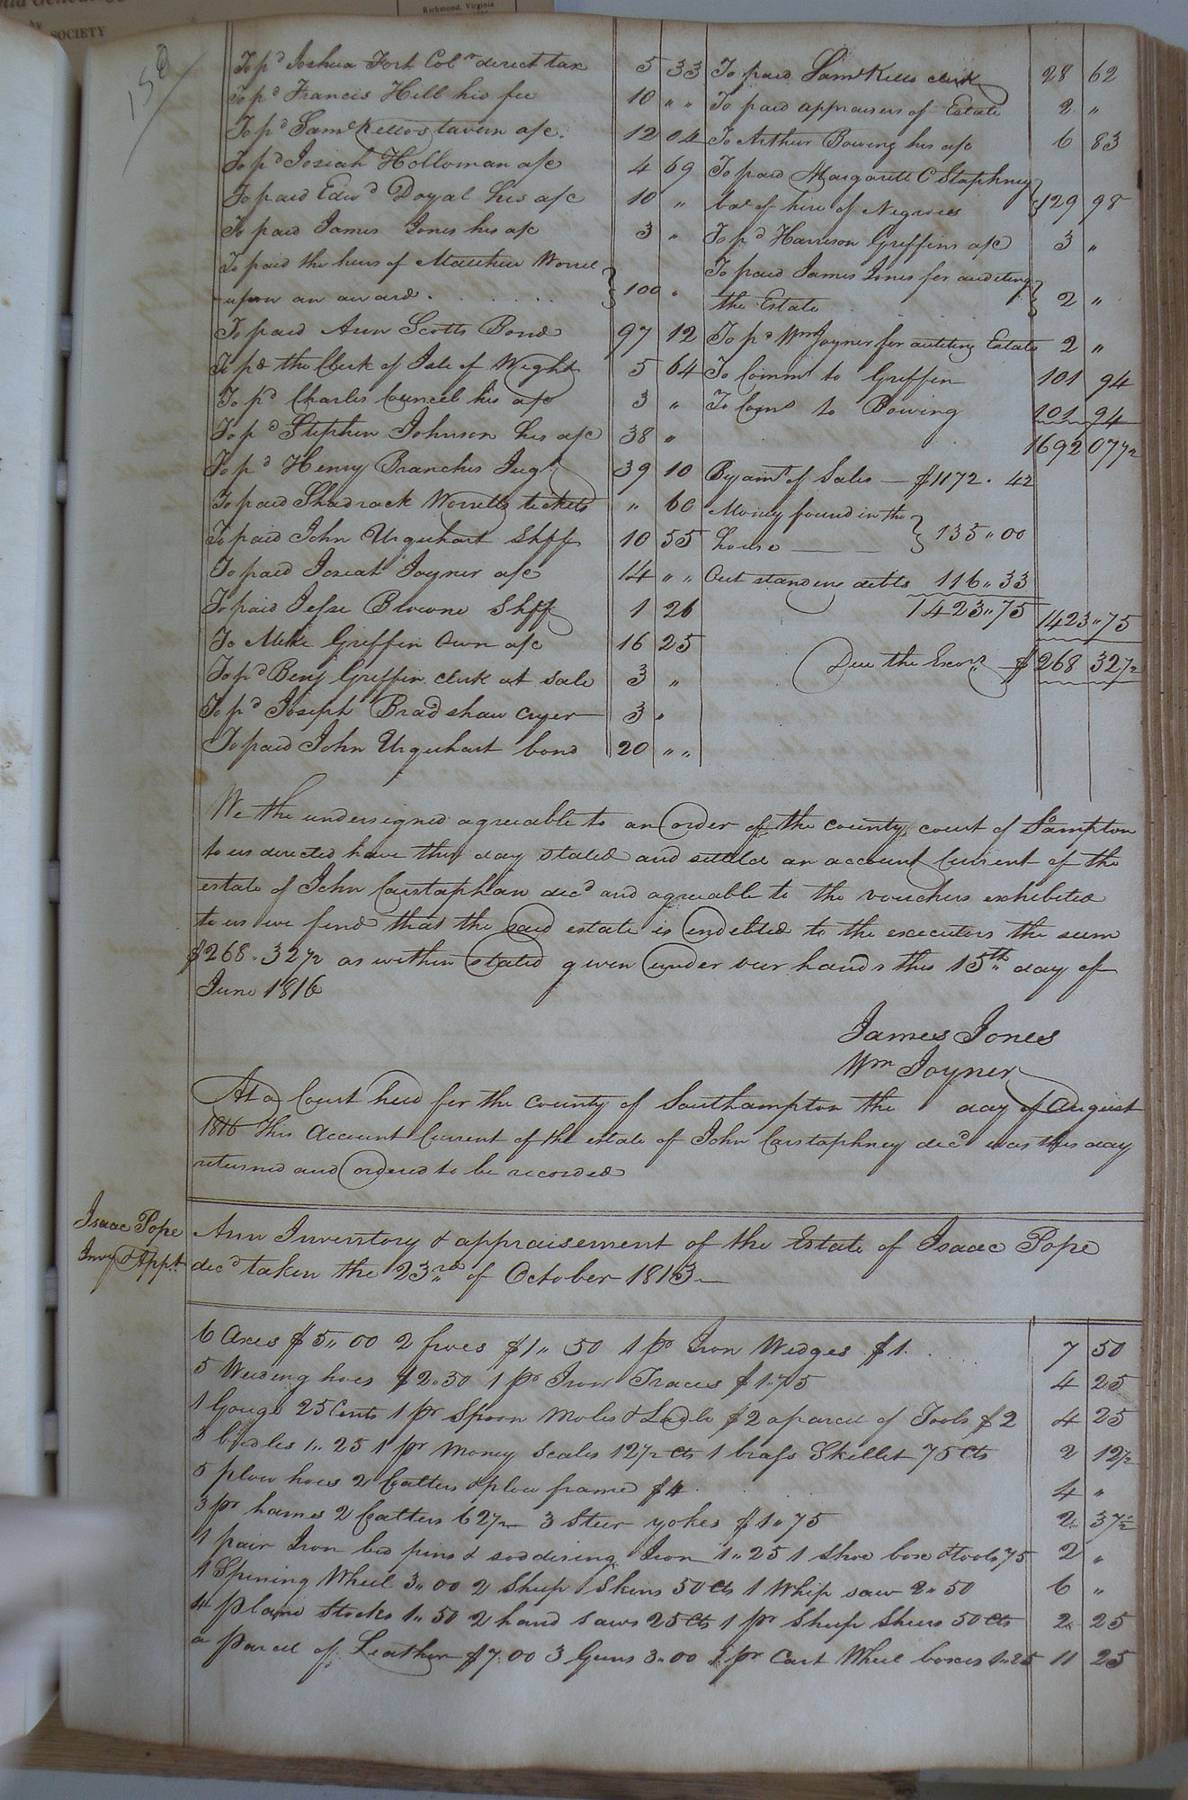 Richmond, Virginia
SOCIETY
150
To pd Joshua Fort Colr direct tax 5 33
To pd Francis Hill his fee 10 " "
To pd Saml Kellos tavern a/c. 12 04
To pd Josiah Holloman a/c 4 69
To paid Edwd Doyal his a/c 10 "
To paid James Jones his a/c 3 "
To paid the heirs of Matthew Worrel
upon an award . . . . . . 100 "
To paid Ann Scotts Bond 97 12
To pd the Clerk of Isle of Wight 5 64
To pd Charles Councel his a/c 3 "
To pd Stephen Johnson his a/c 38 "
To pd Henry Branches Jugt 39 10
To paid Shadrack Worrells tickets " 60
To paid John Urquhart Shff 10 55
To paid Josiah Joyner a/c 14 " "
To paid Jesse Browne Shff 1 26
To Mike Griffin Own a/c 16 25
To pd Benj Griffin clerk at sale 3 "
To pd Joseph Bradshaw cryer 3 "
To paid John Urquhart bond 20 " "
To paid Saml Kello clerk 28 62
To paid appraisers of Estate 2 "
To Arthur Bowing his a/c 6 83
To paid Margarett C Staphney
bal of hire of Negroes 129 98
To pd Harrison Griffins a/c 3 "
To paid James Jones for auditing
the Estate 2 "
To pd Wm Joyner for auditing Estate 2 "
To Commr to Griffin 101 94
To Coms to Bowing 101 94
1692 07 1/2
By amt of Sales — $1172 . 42
Money found in the
house — 135 " 00
Out standing debts 116 " 33
1423 " 75 1423 " 75
Due the Exors $ 268 32 1/2
We the undersigned agreeable to an order of the county court of Sampton
to us directed have this day stated and settled an account Current of the
estate of John Carstaphan decd and agreable to the vouchers exhibited
to us we find that the said estate is indebted to the executors the sum
$268 . 32 1/2 as within stated given under our hands this 15th day of
June 1816
James Jones
Wm Joyner
At a Court held for the county of Southampton the day of August
1816 This Account Current of the estate of John Carstaphney decd was this day
returned and ordered to be recorded
Isaac Pope
Invy & Appt
Ann Inventory & appraisement of the Estate of Isaac Pope
decd taken the 23rd of October 1813 —
6 Axes $5 " 00 2 froes $1 " 50 1 pr Iron Wedges $1 . . . 7 50
5 Weeding hoes $2 " 50 1 pr Iron Traces $1 " 75 4 25
1 Gouge 25 Cents 1 pr Spoon Moles & Ladle $2 a parcel of Tools $2 4 25
3 bridles 1 " 25 1 pr Money Scales 12 1/2 cts 1 brass Skillet 75 cts 2 12 1/2
5 plow hoes 2 Catters & plow frame $4 4 "
3 pr hames 2 Catters 62 1/2 3 Steer yokes $1 " 75 2 37 1/2
1 pair Iron bed pins & soddering Iron 1 " 25 1 Shoe box & tools 75 2 "
1 Spining Wheel 3 " 00 2 Sheep Skins 50 cts 1 Whip saw 2 " 50 6 "
4 plane Stocks 1 " 50 2 hand saws 25 cts 1 pr Sheep Shers 50 cts 2 25
a parcel of Leather $7 " 00 3 Guns 3 " 00 1 pr Cart Wheel boxes 1 " 25 11 25